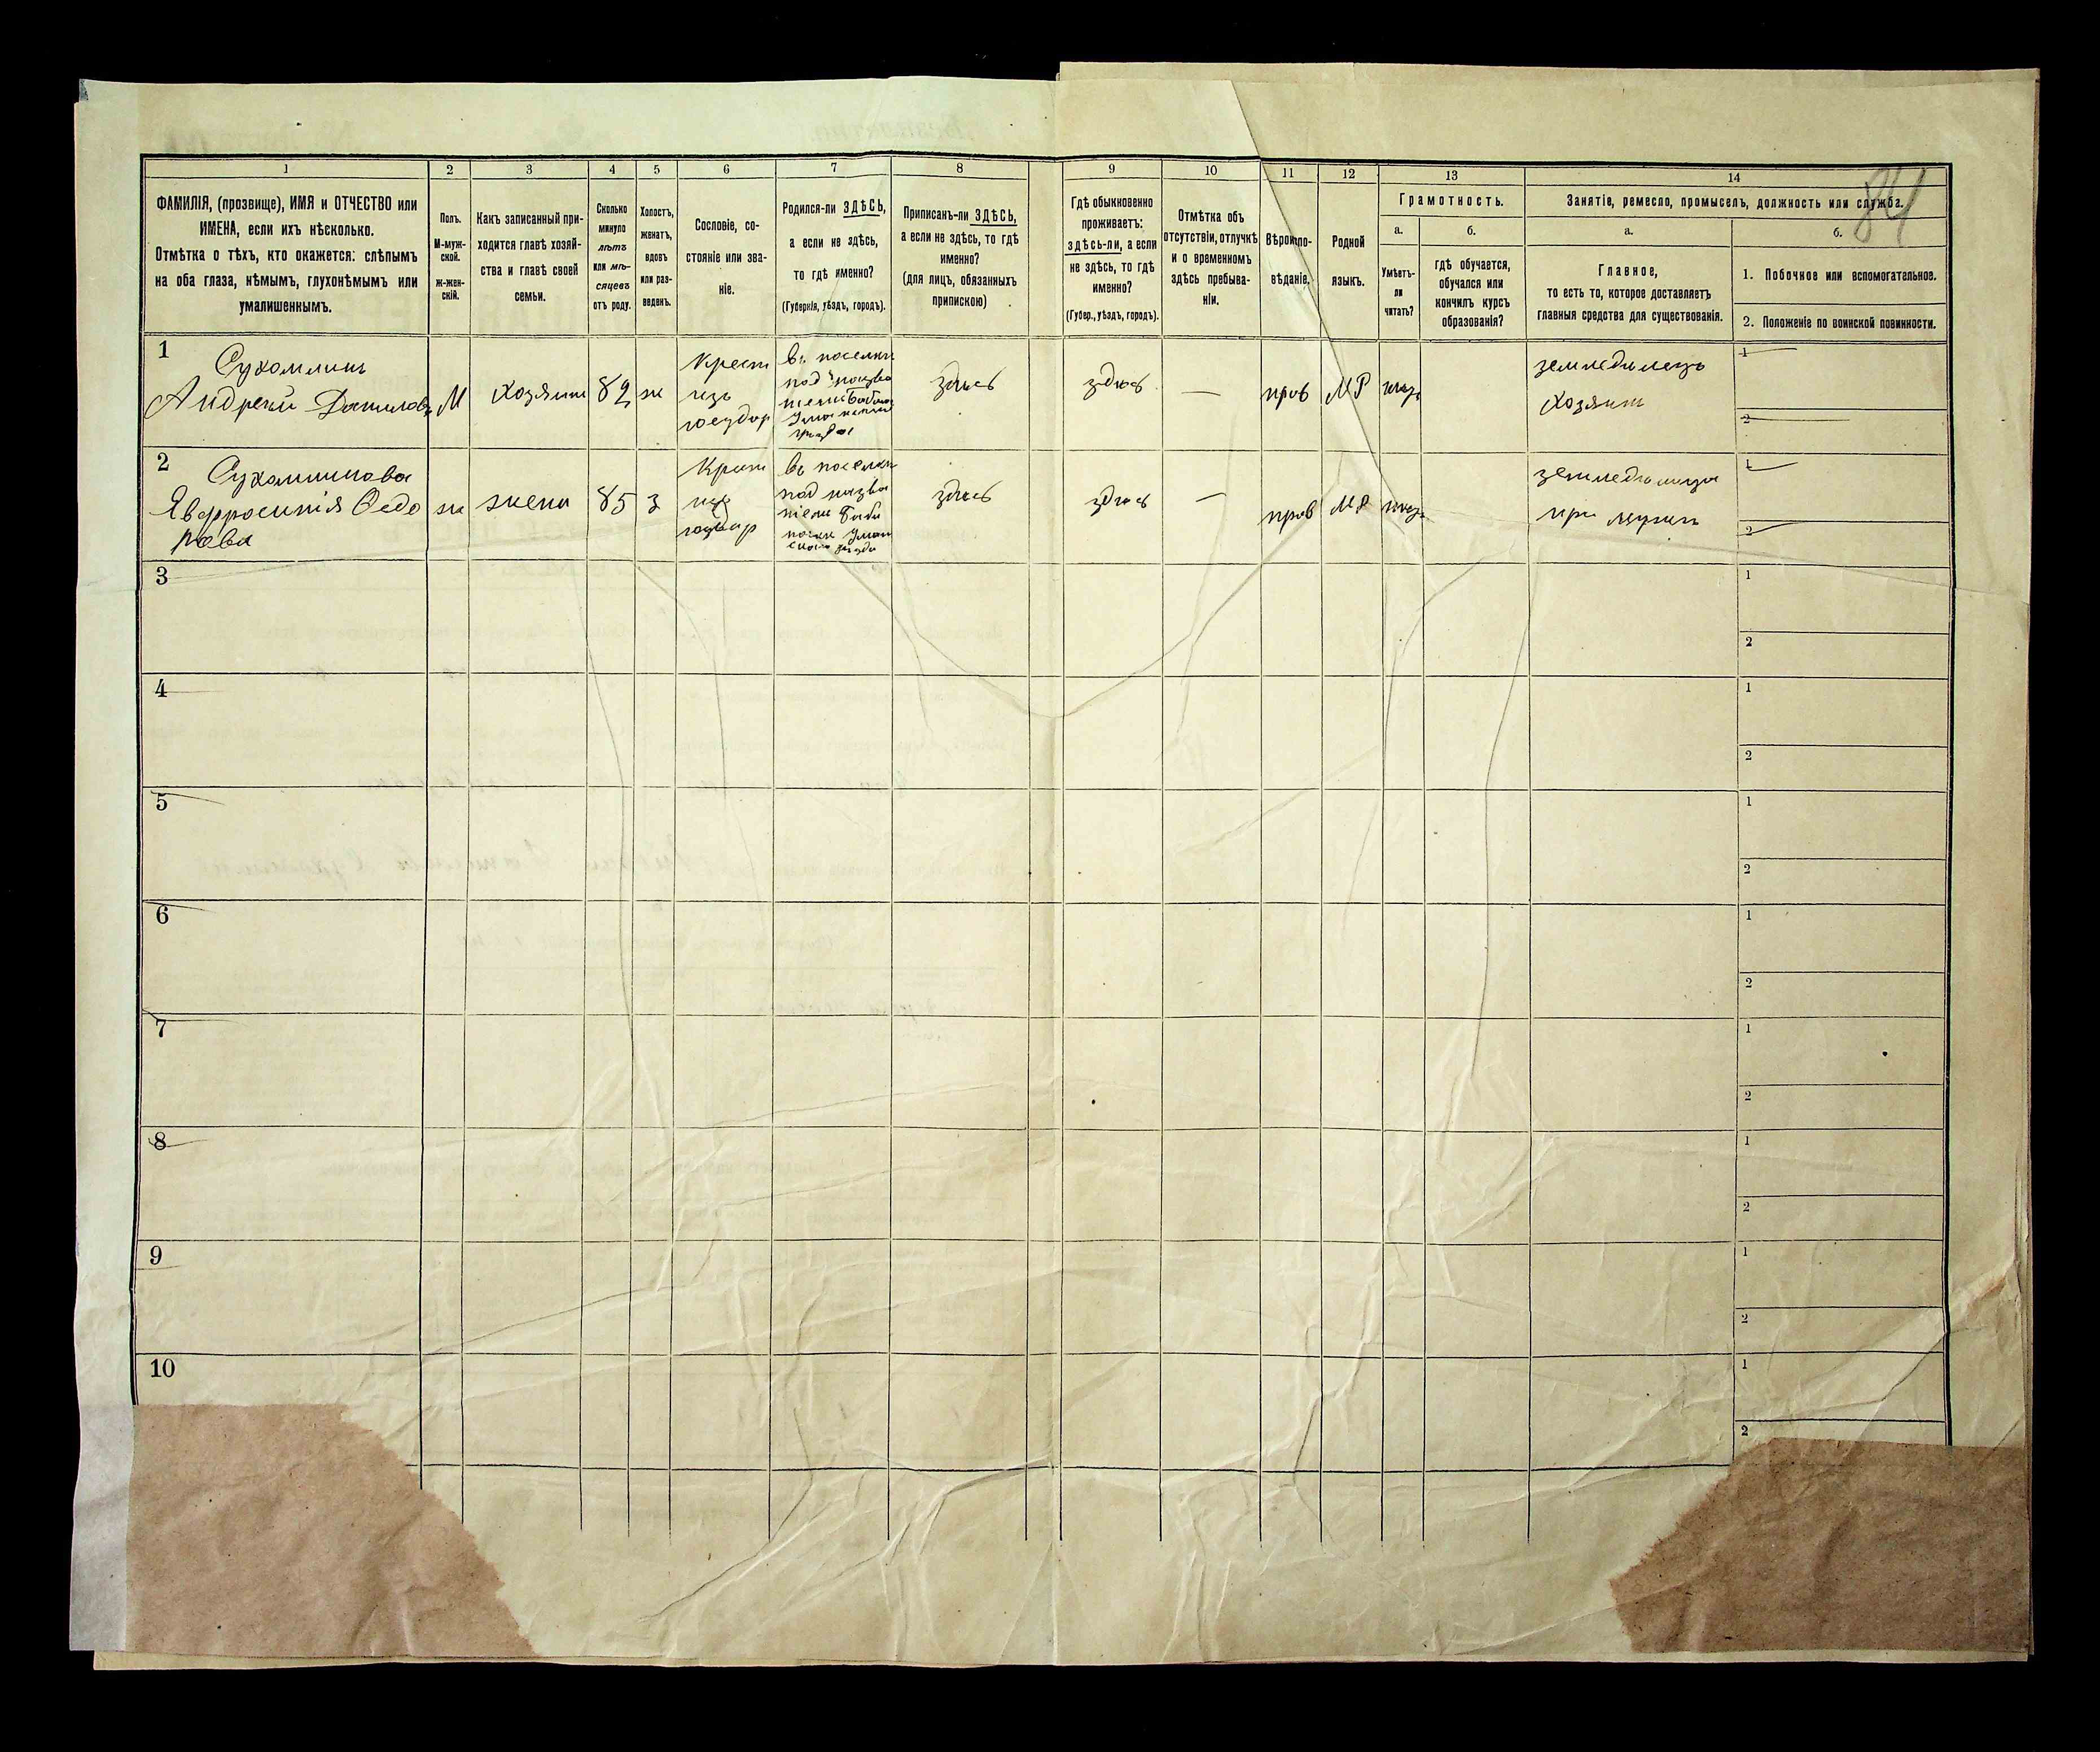 84
1 2 3 4 5 6 7 8 9 10 11 12 13 14
ФАМИЛІЯ, (прозвище), ИМЯ и ОТЧЕСТВО или
ИМЕНА, если ихъ нѣсколько.
Отмѣтка о тѣхъ, кто окажется: слѣпымъ
на оба глаза, нѣмымъ, глухонѣмымъ или
умалишеннымъ.
Полъ.
М-муж-
ской.
Ж-жен-
скій.
Какъ записанный при-
ходится главѣ хозяй-
ства и главѣ своей
семьи.
Сколько
минуло
лѣтъ
или мѣ-
сяцевъ
отъ роду.
Холостъ,
женатъ,
вдовъ
или раз-
веденъ.
Сословіе, со-
стояніе или зва-
ніе.
Родился-ли ЗДѢСЬ,
а если не здѣсь,
то гдѣ именно?
(Губернія, уѣздъ, городъ).
Приписанъ-ли ЗДѢСЬ,
а если не здѣсь, то гдѣ
именно?
(для лицъ, обязанныхъ
припискою)
Гдѣ обыкновенно
проживаетъ:
здѣсь-ли, а если
не здѣсь, то гдѣ
именно?
(Губер., уѣздъ, городъ).
Отмѣтка объ
отсутствіи, отлучкѣ
и о временномъ
здѣсь пребыва-
ніи.
Вѣроиспо-
вѣданіе.
Родной
языкъ.
Грамотность.
а.
Умѣетъ-
ли
читать?
б.
гдѣ обучается,
обучался или
кончилъ курсъ
образованія?
Занятіе, ремесло, промыселъ, должность или служба.
а.
Главное,
то есть то, которое доставляетъ
главныя средства для существованія.
б.
1. Побочное или вспомогательное.
2. Положеніе по воинской повинности.
1
Сухомлинъ
Андрей Даниловъ
М
хозяин
82
ж
Крест
изъ
государ
въ поселкѣ
под назва
здѣсь
здѣсь
—
прав
МР
земледѣлецъ
хозяин
1
2
2
Сухомлинова
Евфросинія Федо
рова
ж
жена
85
з
Крест
изъ
въ поселкѣ
под назва
ніем Баби
здѣсь
здѣсь
—
прав
МР
земледѣлица
при мужѣ
1
2
3
1
2
4
1
2
5
1
2
6
1
2
7
1
2
8
1
2
9
1
2
10
1
2